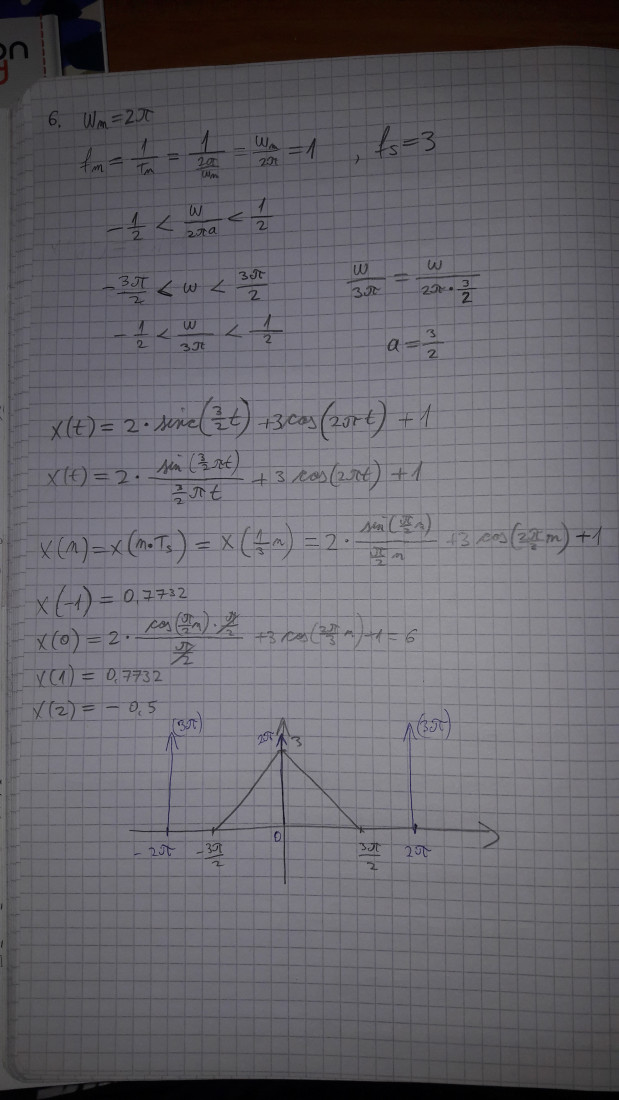 on
6. ωₘ=2π
fₘ = 1/Tₘ = 1/(2π/ωₘ) = ωₘ/2π = 1 , fₛ=3
-1/2 < ω/2πa < 1/2
-3π/2 < ω < 3π/2 ω/3π = ω/(2π·3/2)
-1/2 < ω/3π < 1/2 a = 3/2
x(t) = 2·sinc(3/2 t) +3cos(2πt) +1
x(t) = 2· sin(3/2 πt)/(3/2 πt) + 3cos(2πt) +1
x(n)=x(n·Tₛ) = x(1/3 n) = 2· sin(π/2 n)/(π/2 n) +3cos(2π/3 n) +1
x(-1) = 0,7732
x(0) = 2· cos(π/2 n)·π/2 / π/2 +3cos(2π/3 n)+1 = 6
x(1) = 0,7732
x(2) = - 0,5
(3π) 2π 3 (3π)
-2π -3π/2 0 3π/2 2π